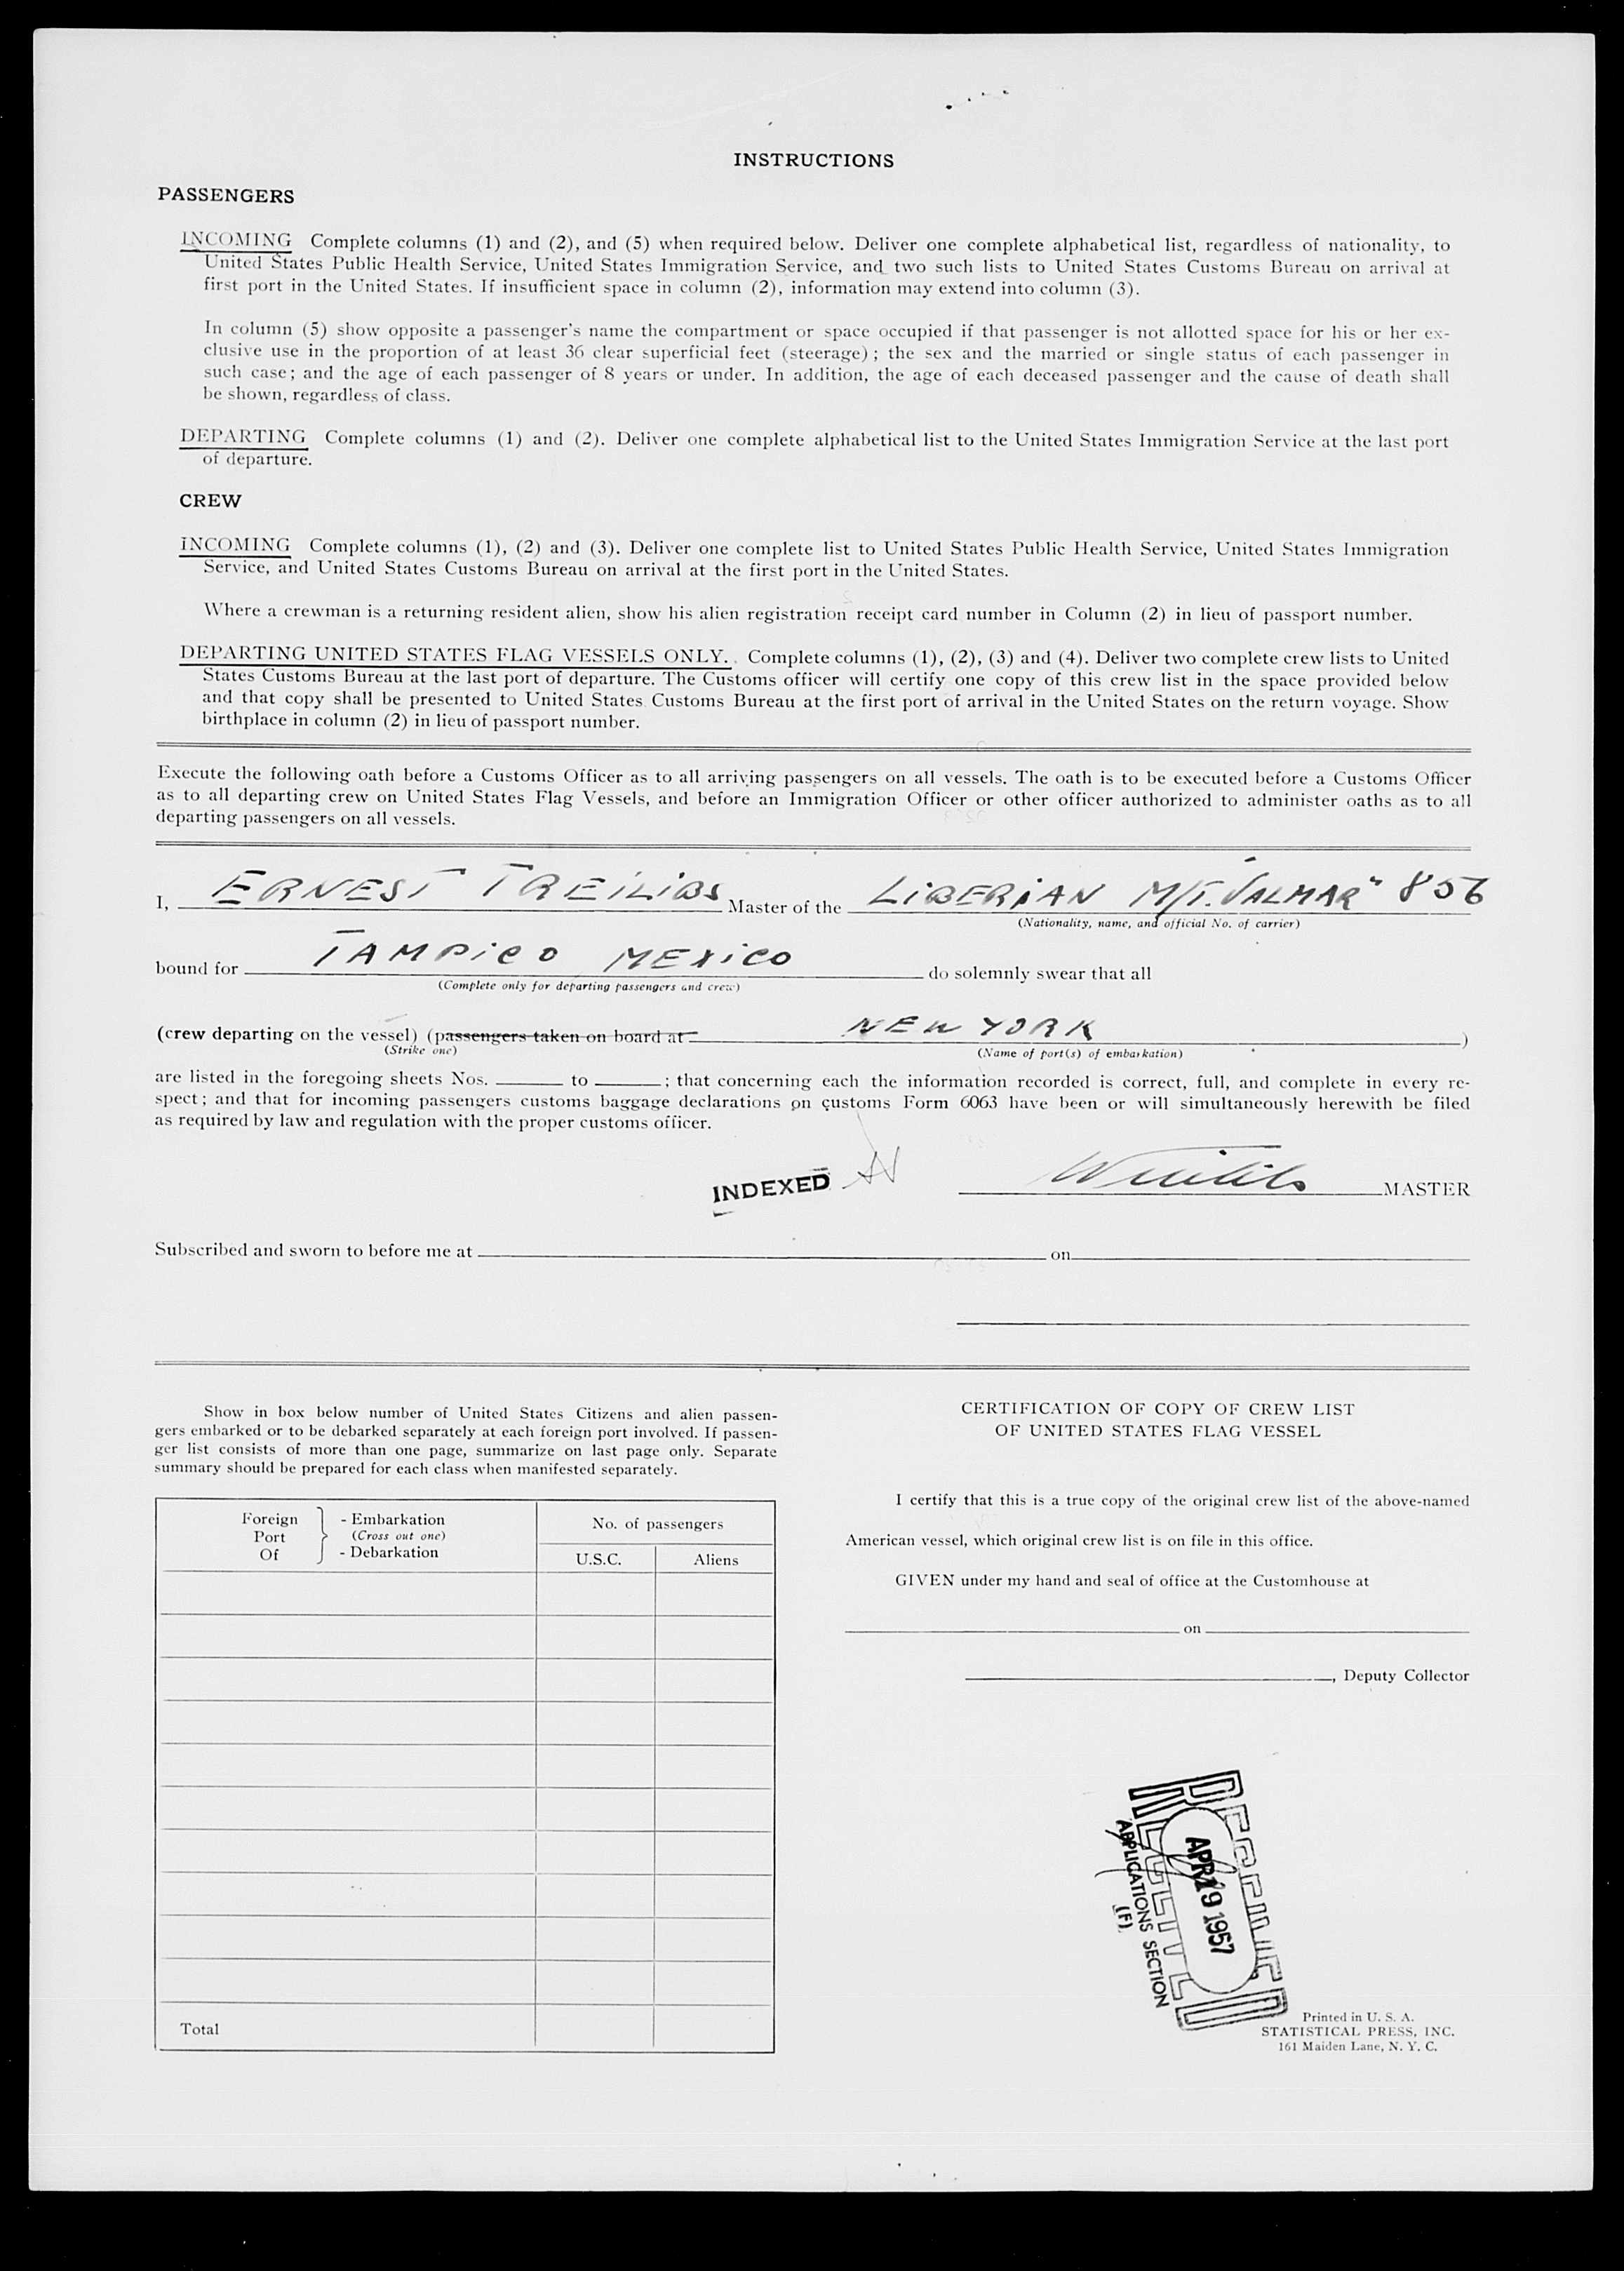 INSTRUCTIONS
PASSENGERS
INCOMING Complete columns (1) and (2), and (5) when required below. Deliver one complete alphabetical list, regardless of nationality, to
United States Public Health Service, United States Immigration Service, and two such lists to United States Customs Bureau on arrival at
first port in the United States. If insufficient space in column (2), information may extend into column (3).
In column (5) show opposite a passenger's name the compartment or space occupied if that passenger is not allotted space for his or her ex-
clusive use in the proportion of at least 36 clear superficial feet (steerage); the sex and the married or single status of each passenger in
such case; and the age of each passenger of 8 years or under. In addition, the age of each deceased passenger and the cause of death shall
be shown, regardless of class.
DEPARTING Complete columns (1) and (2). Deliver one complete alphabetical list to the United States Immigration Service at the last port
of departure.
CREW
INCOMING Complete columns (1), (2) and (3). Deliver one complete list to United States Public Health Service, United States Immigration
Service, and United States Customs Bureau on arrival at the first port in the United States.
Where a crewman is a returning resident alien, show his alien registration receipt card number in Column (2) in lieu of passport number.
DEPARTING UNITED STATES FLAG VESSELS ONLY. Complete columns (1), (2), (3) and (4). Deliver two complete crew lists to United
States Customs Bureau at the last port of departure. The Customs officer will certify one copy of this crew list in the space provided below
and that copy shall be presented to United States Customs Bureau at the first port of arrival in the United States on the return voyage. Show
birthplace in column (2) in lieu of passport number.
Execute the following oath before a Customs Officer as to all arriving passengers on all vessels. The oath is to be executed before a Customs Officer
as to all departing crew on United States Flag Vessels, and before an Immigration Officer or other officer authorized to administer oaths as to all
departing passengers on all vessels.
I, ERNEST TREILIBS Master of the LIBERIAN M/T. VALMAR" 856
(Nationality, name, and official No. of carrier)
bound for TAMPICO MEXICO do solemnly swear that all
(Complete only for departing passengers and crew)
(crew departing on the vessel) (passengers taken on board at NEW YORK )
(Strike one) (Name of port(s) of embarkation)
are listed in the foregoing sheets Nos. to ; that concerning each the information recorded is correct, full, and complete in every re-
spect; and that for incoming passengers customs baggage declarations on customs Form 6063 have been or will simultaneously herewith be filed
as required by law and regulation with the proper customs officer.
INDEXED MASTER
Subscribed and sworn to before me at on
Show in box below number of United States Citizens and alien passen-
gers embarked or to be debarked separately at each foreign port involved. If passen-
ger list consists of more than one page, summarize on last page only. Separate
summary should be prepared for each class when manifested separately.
Foreign Port Of - Embarkation
(Cross out one)
- Debarkation
No. of passengers
U.S.C. Aliens
Total
CERTIFICATION OF COPY OF CREW LIST
OF UNITED STATES FLAG VESSEL
I certify that this is a true copy of the original crew list of the above-named
American vessel, which original crew list is on file in this office.
GIVEN under my hand and seal of office at the Customhouse at
on
, Deputy Collector
RECEIVED
APR 19 1957
RECEIVED
APPLICATIONS SECTION
(F)
Printed in U. S. A.
STATISTICAL PRESS, INC.
161 Maiden Lane, N. Y. C.